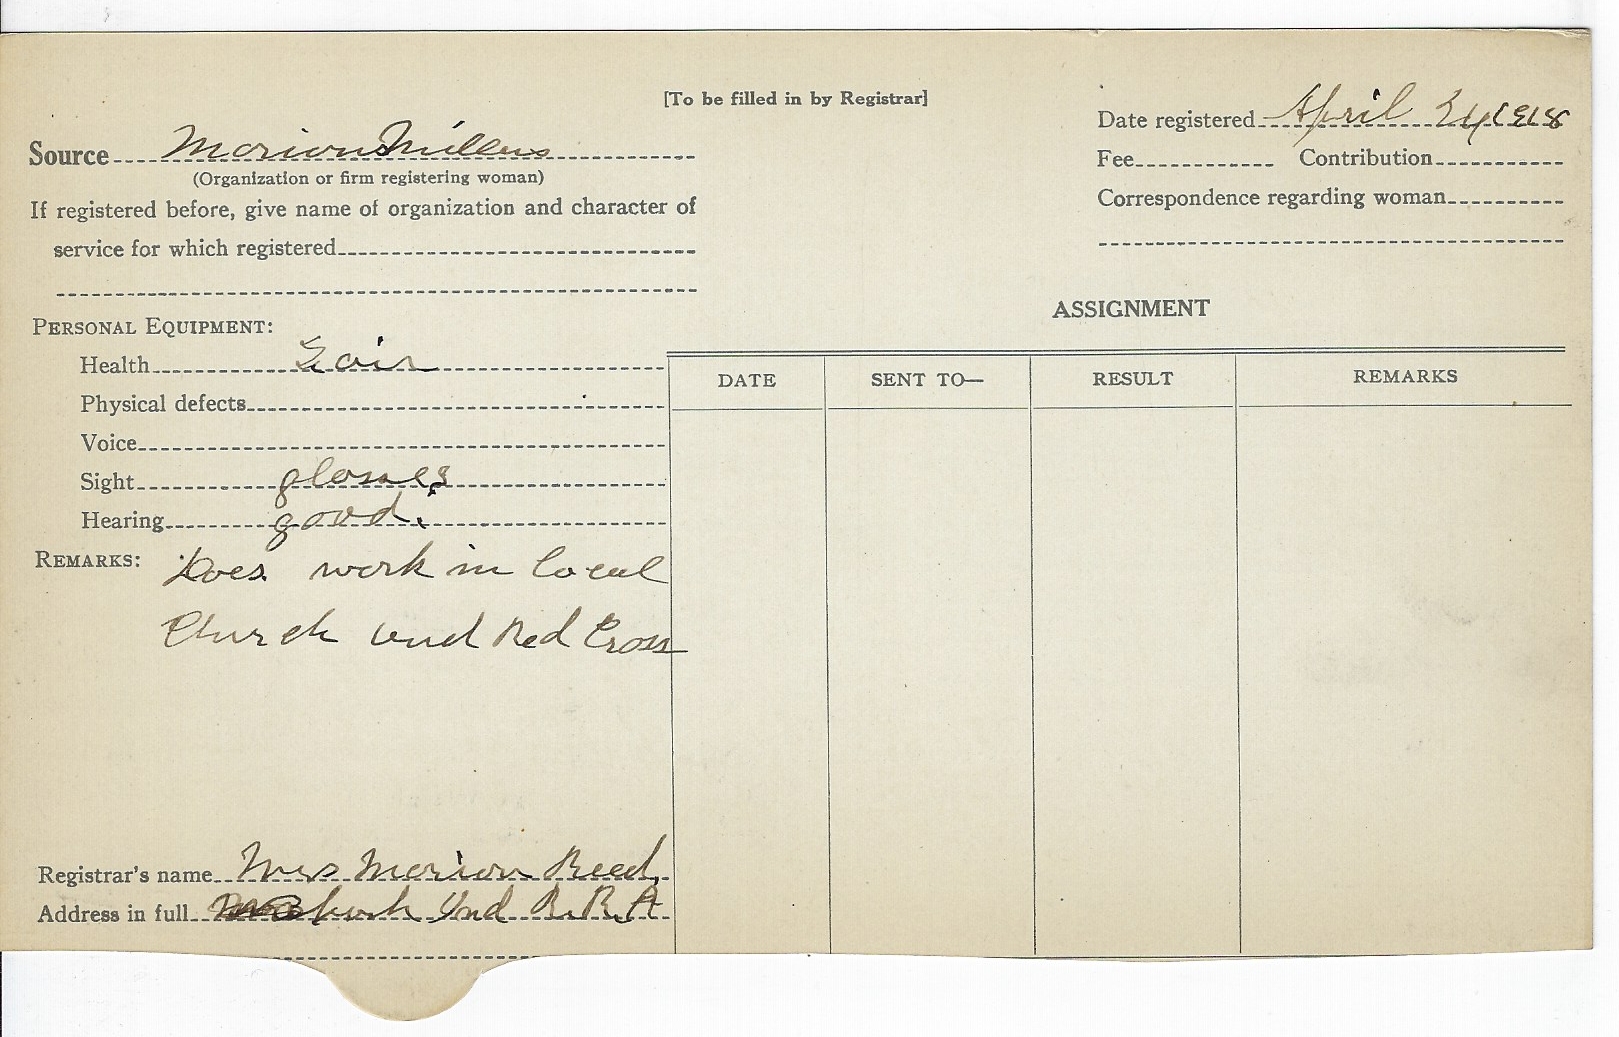 [To be filled in by Registrar]
Date registered April 24 1918
Source Marion
(Organization or firm registering woman)
Fee Contribution
If registered before, give name of organization and character of
service for which registered
Correspondence regarding woman
PERSONAL EQUIPMENT:
Health Fair
Physical defects
Voice
Sight glasses
Hearing good.
REMARKS: Does work in local
Church and Red Cross
ASSIGNMENT
DATE SENT TO— RESULT REMARKS
Registrar's name Mrs Marion Reed,
Address in full Ind R.R.A